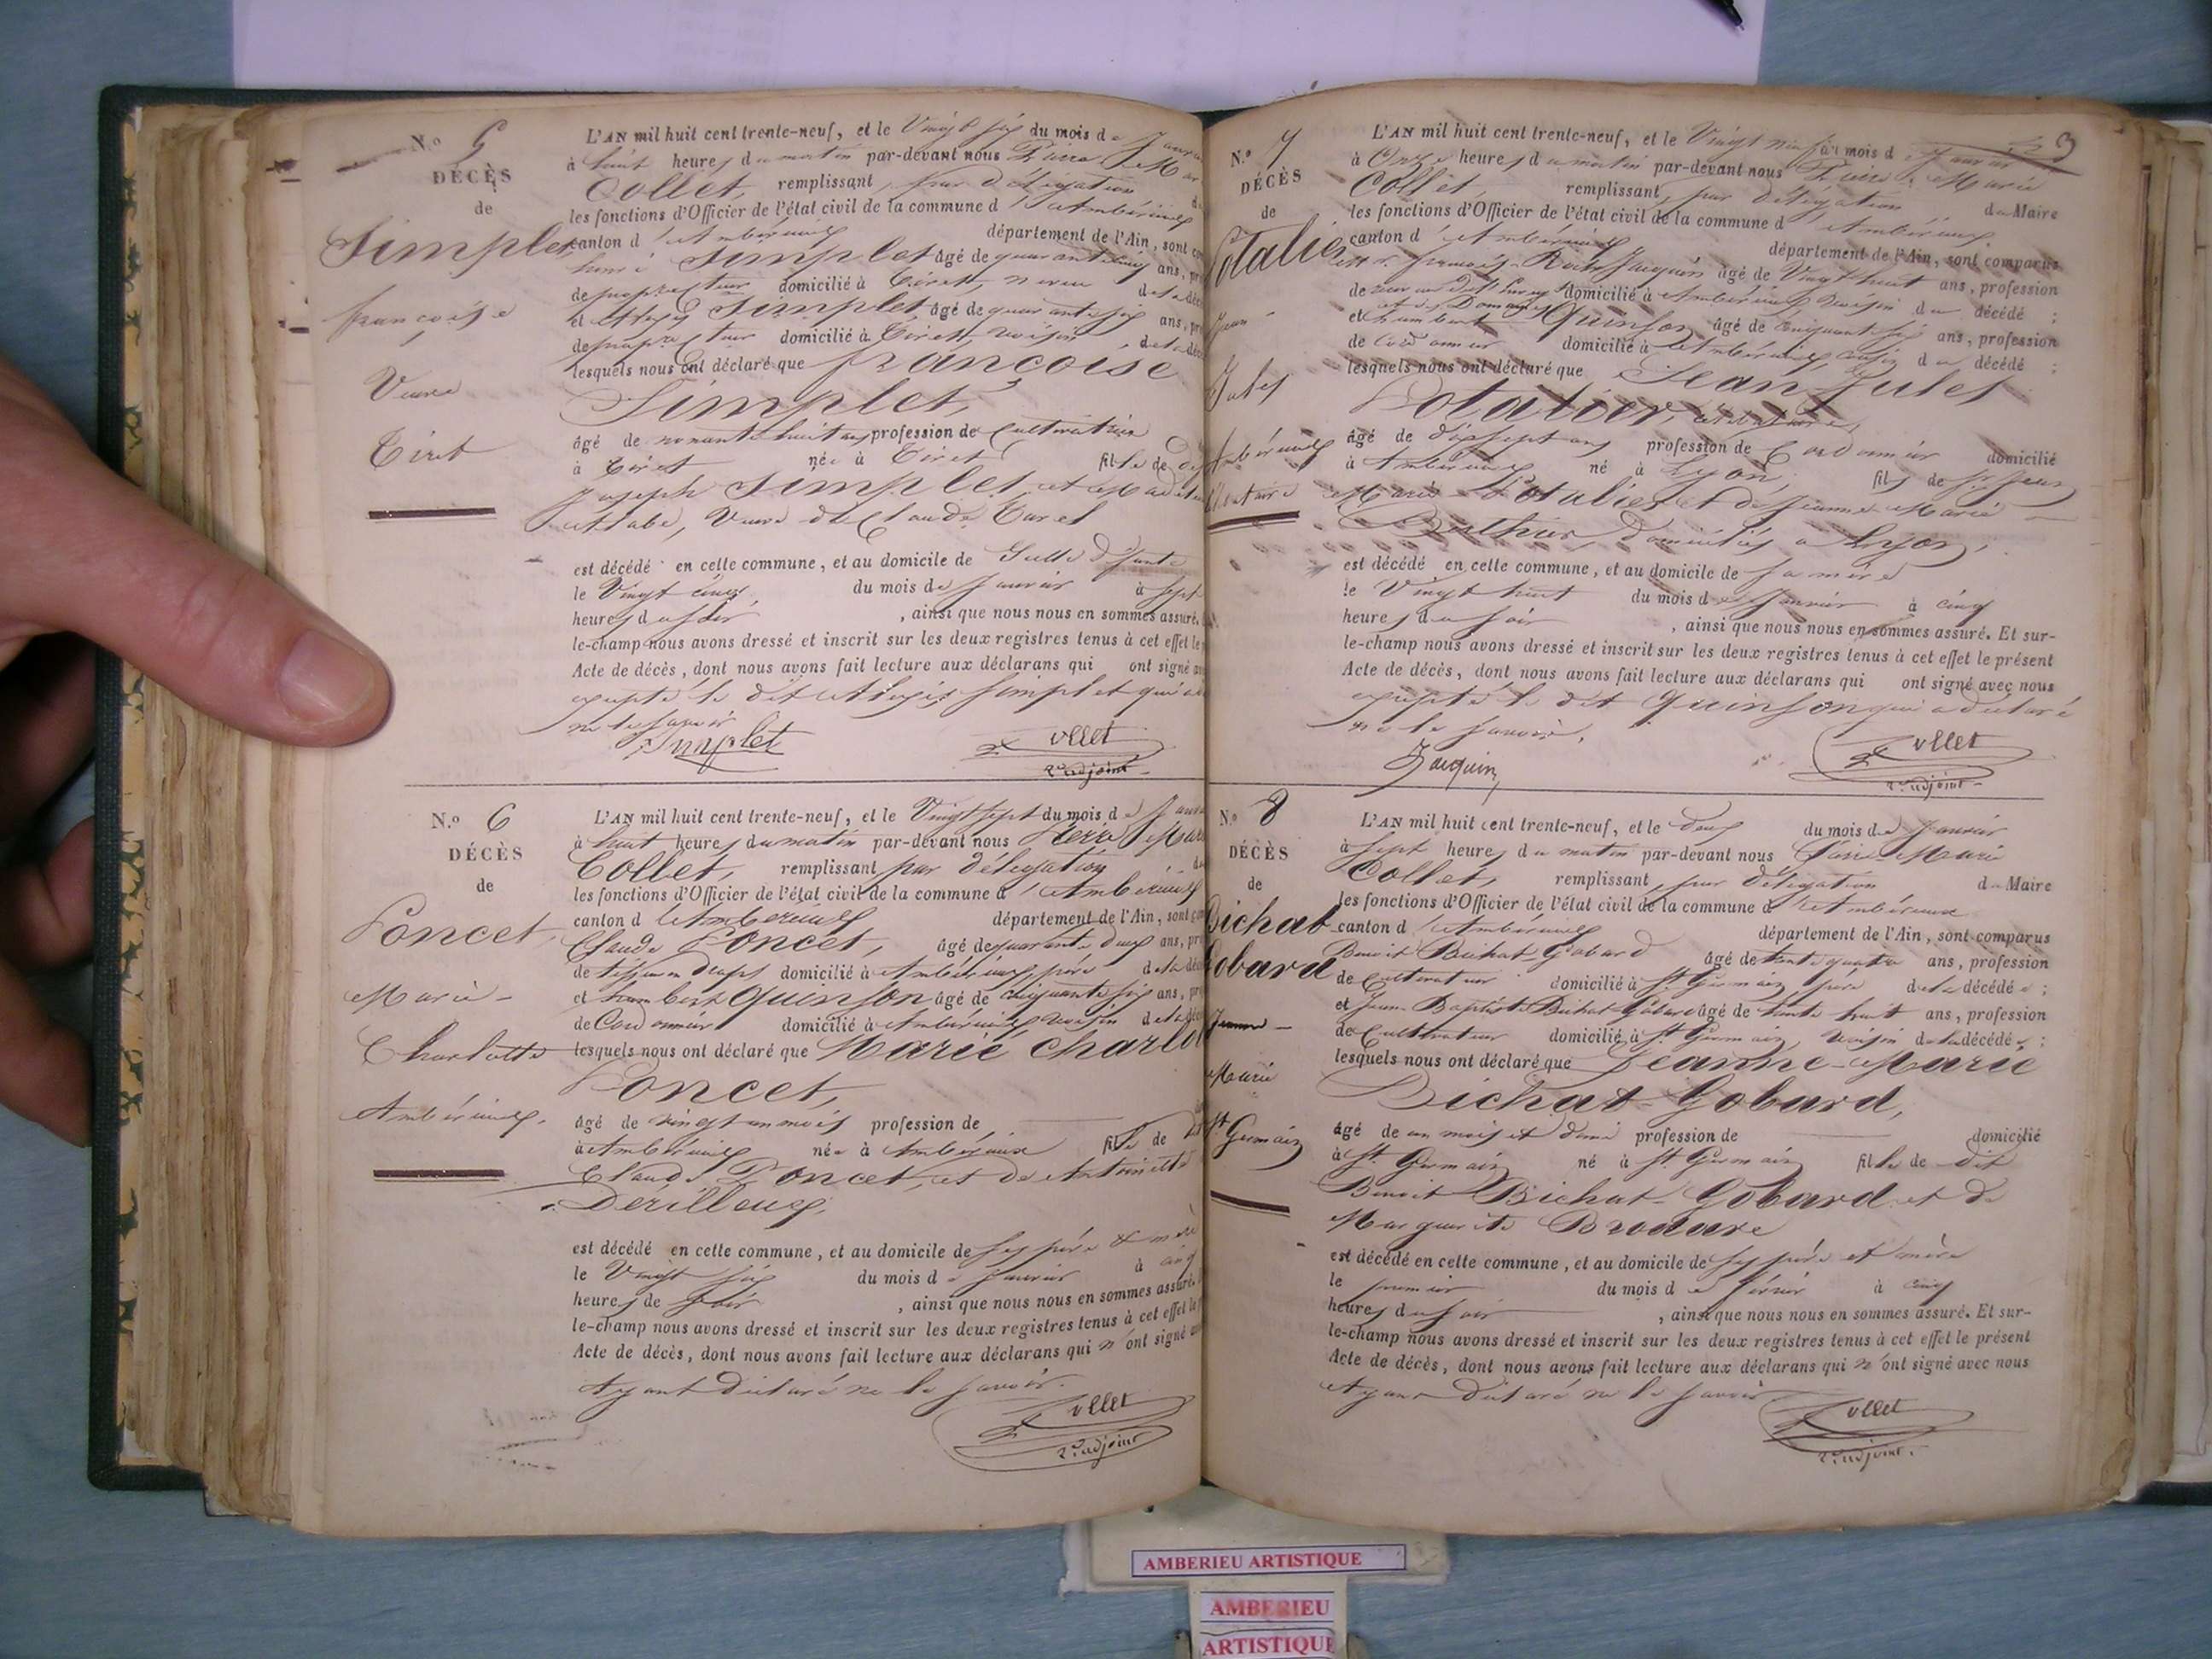 N.o 5
DÉCÈS
de
Simplet,
françoise
Veuve
Tiret
L'AN mil huit cent trente-neuf, et le Vingt six du mois de Janv
à huit heures du matin par-devant nous Pierre Mar
Collet, remplissant par délégation d
les fonctions d'Officier de l'état civil de la commune d'Ambérieux
canton d'Ambérieux département de l'Ain, sont co
Simplet âgé de quarante cinq ans, pr
de propriétaire domicilié à Tiret, neveu de la déc
et Aloys Simplet, âgé de quarante six ans, pr
de propriétaire domicilié à Tiret, voisin de la déc
lesquels nous ont déclaré que françoise
Simplet,
âgé de nonante huit ans profession de Cultivatrice
à Tiret née à Tiret fille de
Joseph Simplet, et
Veuve de Claude
est décédé en cette commune, et au domicile de
le Vingt cinq, du mois de Janvier à sept
heures du soir , ainsi que nous nous en sommes assuré.
le-champ nous avons dressé et inscrit sur les deux registres tenus à cet effet le
Acte de décès, dont nous avons fait lecture aux déclarans qui ont signé av
excepté le dit Aloys Simplet qui a
ne le savoir
Simplet
Collet
2e adjoint
N.o 6
DÉCÈS
de
Poncet,
Marie
Charlotte
Ambérieux.
L'AN mil huit cent trente-neuf, et le Vingt sept du mois de Janv
à huit heures du matin par-devant nous Pierre Mari
Collet, remplissant par délégation d
les fonctions d'Officier de l'état civil de la commune d'Ambérieux
canton d'Ambérieux département de l'Ain, sont com
Claude Poncet, âgé de quarante deux ans, pr
de tisseur en draps domicilié à Ambérieux, père de la déc
et humbert Quinson âgé de cinquante six ans, pr
de Cordonnier domicilié à Ambérieux voisin de la déc
lesquels nous ont déclaré que Marie Charlot
Poncet,
âgé de vingt un mois profession de
à Ambérieux née à Ambérieux fille de dit
Claude Poncet, et de Antoinette
Derilleux,
est décédé en cette commune, et au domicile de ses père & mère
le Vingt six du mois de Janvier à cinq
heures de soir , ainsi que nous nous en sommes assuré.
le-champ nous avons dressé et inscrit sur les deux registres tenus à cet effet le
Acte de décès, dont nous avons fait lecture aux déclarans qui n'ont signé
Ayant déclaré ne le savoir.
Collet
2e adjoint
3
N.o 7
DÉCÈS
de
Potalier
Jean
Jules
Ambérieux
L'AN mil huit cent trente-neuf, et le Vingt neuf du mois de Janvier
à Onze heures du matin par-devant nous Pierre Marie
Collet, remplissant par délégation du Maire
les fonctions d'Officier de l'état civil de la commune d'Ambérieux
canton d'Ambérieux département de l'Ain, sont comparus
françois Jacquin âgé de Vingt huit ans, profession
de domicilié à Ambérieux voisin du décédé ;
et humbert Quinson âgé de cinquante six ans, profession
de Cordonnier domicilié à Ambérieux, du décédé ;
lesquels nous ont déclaré que Jean Jules
Potalier, célibataire,
âgé de dix sept ans profession de Cordonnier domicilié
à Ambérieux né à Lyon, fils de Jean
Marie Potalier et de Jeanne Marie
Berthier, domiciliés à Lyon,
est décédé en cette commune, et au domicile de sa mère
le Vingt huit du mois de Janvier à cinq
heures du soir , ainsi que nous nous en sommes assuré. Et sur-
le-champ nous avons dressé et inscrit sur les deux registres tenus à cet effet le présent
Acte de décès, dont nous avons fait lecture aux déclarans qui ont signé avec nous
excepté le dit Quinson qui a déclaré
ne le savoir.
Jacquin
Collet
2e adjoint
N.o 8
DÉCÈS
de
Bichat
Gobard
Jeanne
Marie
St Germain
L'AN mil huit cent trente-neuf, et le deux du mois de Janvier
à sept heures du matin par-devant nous Pierre Marie
Collet, remplissant par délégation du Maire
les fonctions d'Officier de l'état civil de la commune d'Ambérieux
canton d'Ambérieux département de l'Ain, sont comparus
Benoit Bichat Gobard âgé de trente quatre ans, profession
de Cultivateur domicilié à St Germain père de la décédée ;
et Jean Baptiste Bichat Gobard âgé de trente huit ans, profession
de Cultivateur domicilié à St Germain, voisin de la décédée ;
lesquels nous ont déclaré que Jeanne Marie
Bichat Gobard,
âgé de un mois et demi profession de domicilié
à St Germain né à St Germain fille de dit
Benoit Bichat Gobard et de
Marguerite Brodure
est décédé en cette commune, et au domicile de ses père et mère
le premier du mois de février à cinq
heures du soir , ainsi que nous nous en sommes assuré. Et sur-
le-champ nous avons dressé et inscrit sur les deux registres tenus à cet effet le présent
Acte de décès, dont nous avons fait lecture aux déclarans qui n'ont signé avec nous
Ayant déclaré ne le savoir
Collet
2e adjoint.
AMBERIEU ARTISTIQUE
AMBERIEU
ARTISTIQUE